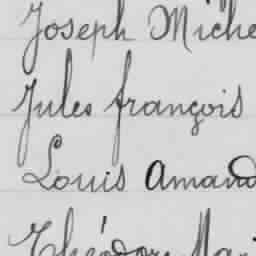 Joseph Miche
Jules françois
Louis Amand
Théodore Mari